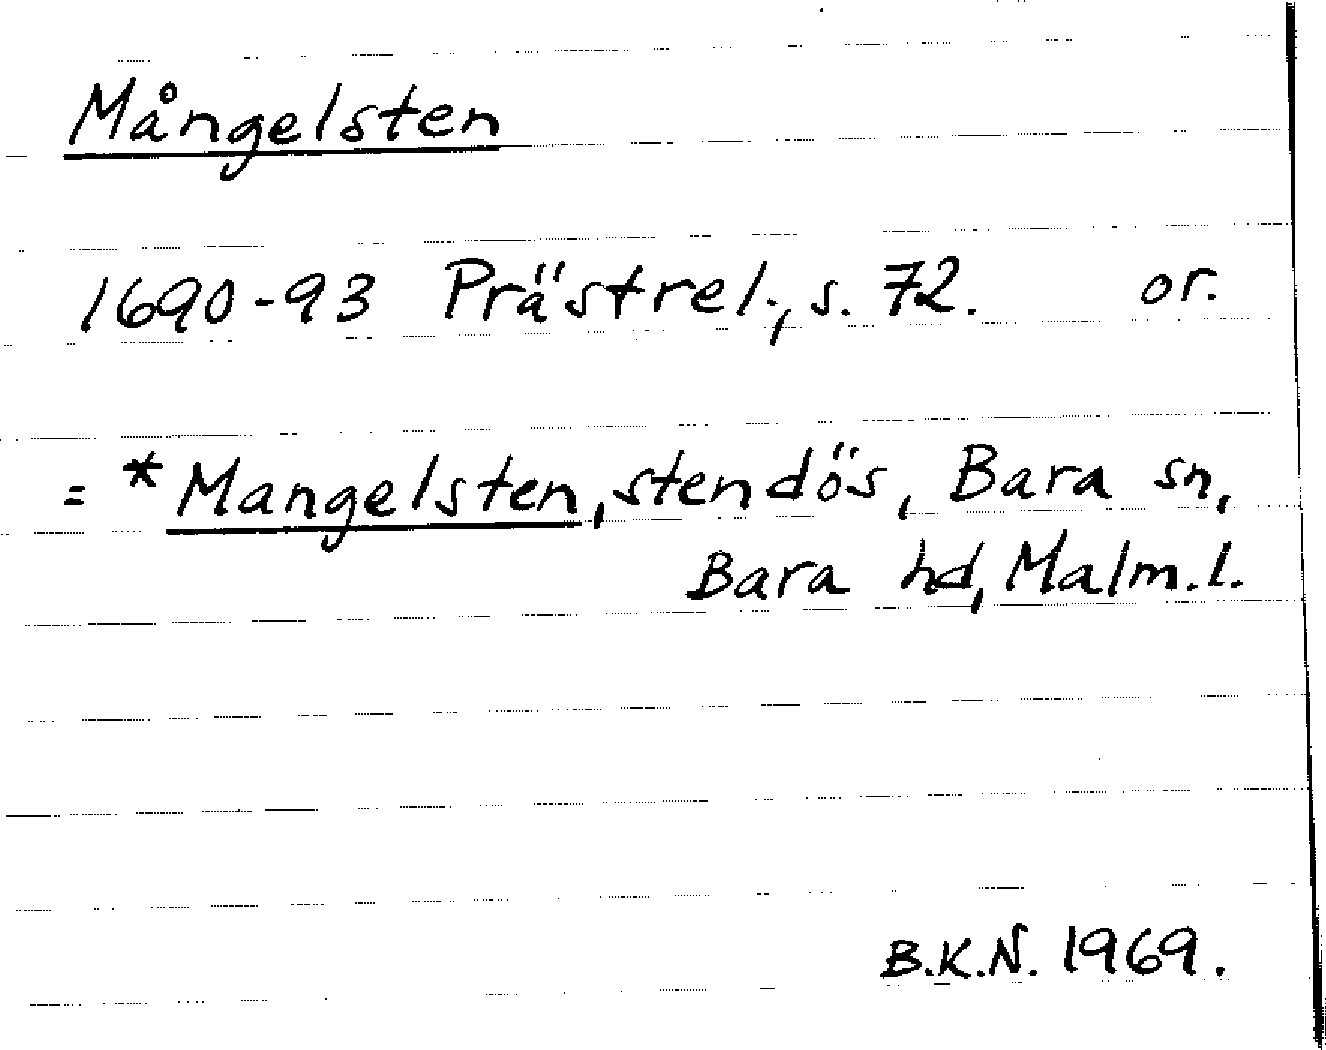 Mångelsten
1690-93 Prästrel., s. 72. or.
= *Mangelsten, stendös, Bara sn,
Bara hd, Malm.l.
B.K.N. 1969.